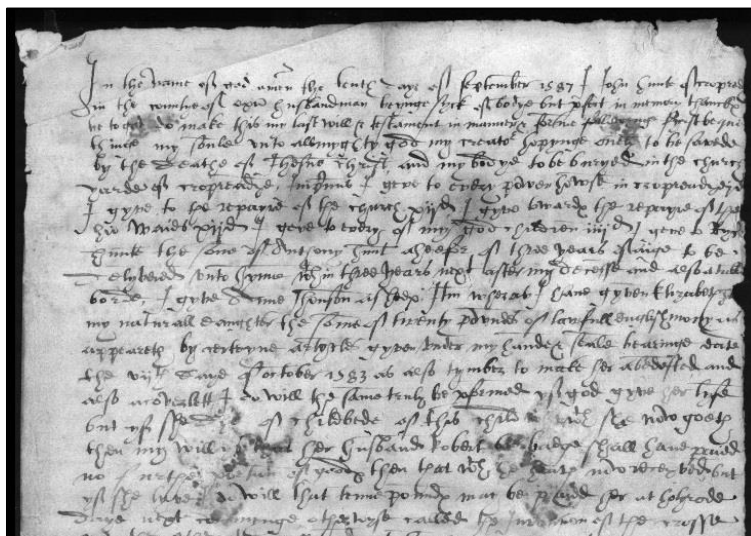 In the name of god amen the tenth daye of September 1587 I John Hunt of Cropredy
in the countie of Oxon husbandman beynge syck of bodye but pfect in memory thanckes
be to god do make this my last will & testament in manner & forme followinge First I beque
thinke my soule unto allmighty god my creator hopynge onlie to be saved
by the deathe of Jhesus Christ, and my bodye to be buryed in the church
yarde of Cropreadye, Inprimis I geve to every pover howse in Cropready
I gyve to the repayre of the church xijd I gyve towards the repayre of the
hie waies xijd I geve to every of my god children iiijd I geve to
Hunt the sone of Anthony Hunt a heyfer of three years of age to be
delyvered unto hyme wthin three years next after my decesse and also a
borde, I gyve Anne Thonson a shepe Itm wheras I have gyven Elizabeth
my naturall daughter the some of twenty pounds of lawfull english mony as
appeareth by certeyne artycles gyven under my hande & seale bearinge date
the vijth daye of October 1583 as also tymber to make her a bedsted and
also a coverlett I do will the same truly be pformed yf god gyve her life
but yf she dye of childbede of this child wth wch she now goeth
then my will is that her husband Robert shall have
no further portion of goods then that wch he hath now receyved but
yf she lyve I do will that tenne pounds may be payed her at holyrode
daye next comynge otherwyse called the Invention of the crosse